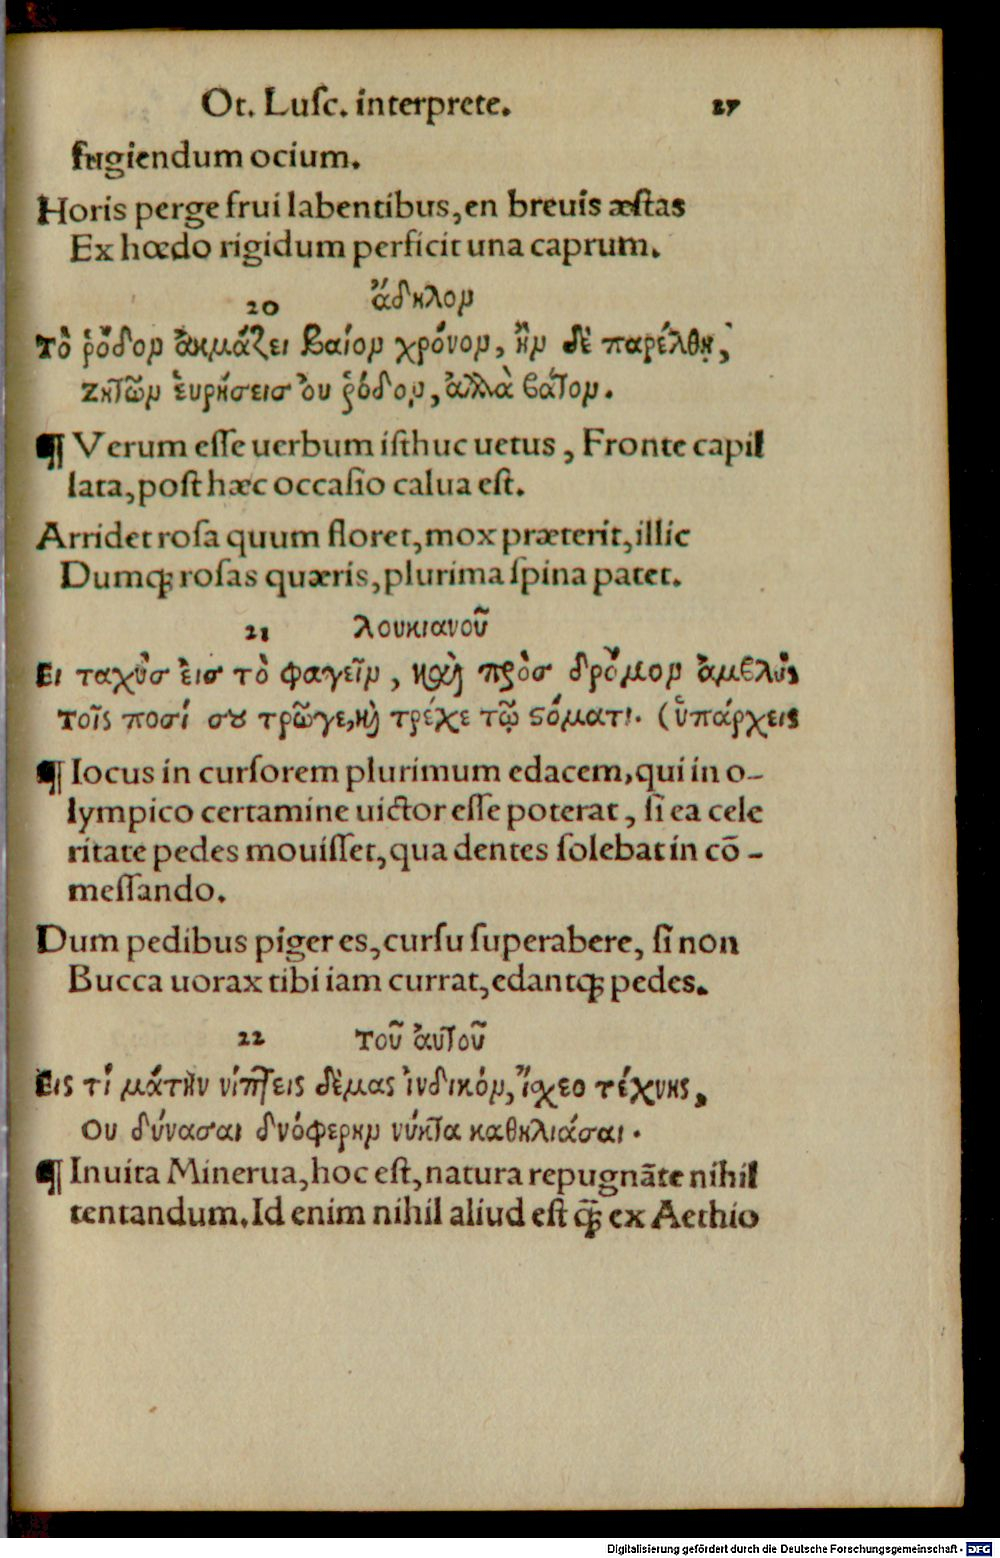 Ot. Luſc. interprete. 27
fugiendum ocium.
Horis perge frui labentibus, en breuis æſtas
Ex hœdo rigidum perficit una caprum.
20 ἄδηλον
Τὸ ῥόδον ἀκμάζει βαιὸν χρόνον, ἢν δὲ παρέλθῃ,
Ζητῶν ἑυρήσεισ ὀυ ῥόδον, ἀλλὰ βάτον.
¶ Verum eſſe uerbum iſthuc uetus, Fronte capil
lata, poſt hæc occaſio calua eſt.
Arridet roſa quum floret, mox præterit, illic
Dumq; roſas quæris, plurima ſpina patet.
21 λουκιανοῦ
Ει ταχὺσ ἐισ τὸ φαγεῖν, καὶ πρὸσ δρόμον ἀμβλὺς
τοῖς ποσί σου τρῶγε, καὶ τρέχε τῷ ϛόματι. (ὑπάρχεις
¶ Iocus in curſorem plurimum edacem, qui in o-
lympico certamine uictor eſſe poterat, ſi ea cele
ritate pedes mouiſſet, qua dentes ſolebat in cō-
meſſando.
Dum pedibus piger es, curſu ſuperabere, ſi non
Bucca uorax tibi iam currat, edantq; pedes.
22 Τοῦ ἀυτοῦ
Εις τί μάτην νίπτεις δέμας ἰνδικόν, ἴσχεο τέχνης,
Ου δύνασαι δνόφερην νύκτα καθηλιάσαι.
¶ Inuita Minerua, hoc eſt, natura repugnāte nihil
tentandum. Id enim nihil aliud eſt q̄; ex Aethio
Digitalisierung gefördert durch die Deutsche Forschungsgemeinschaft - DFG